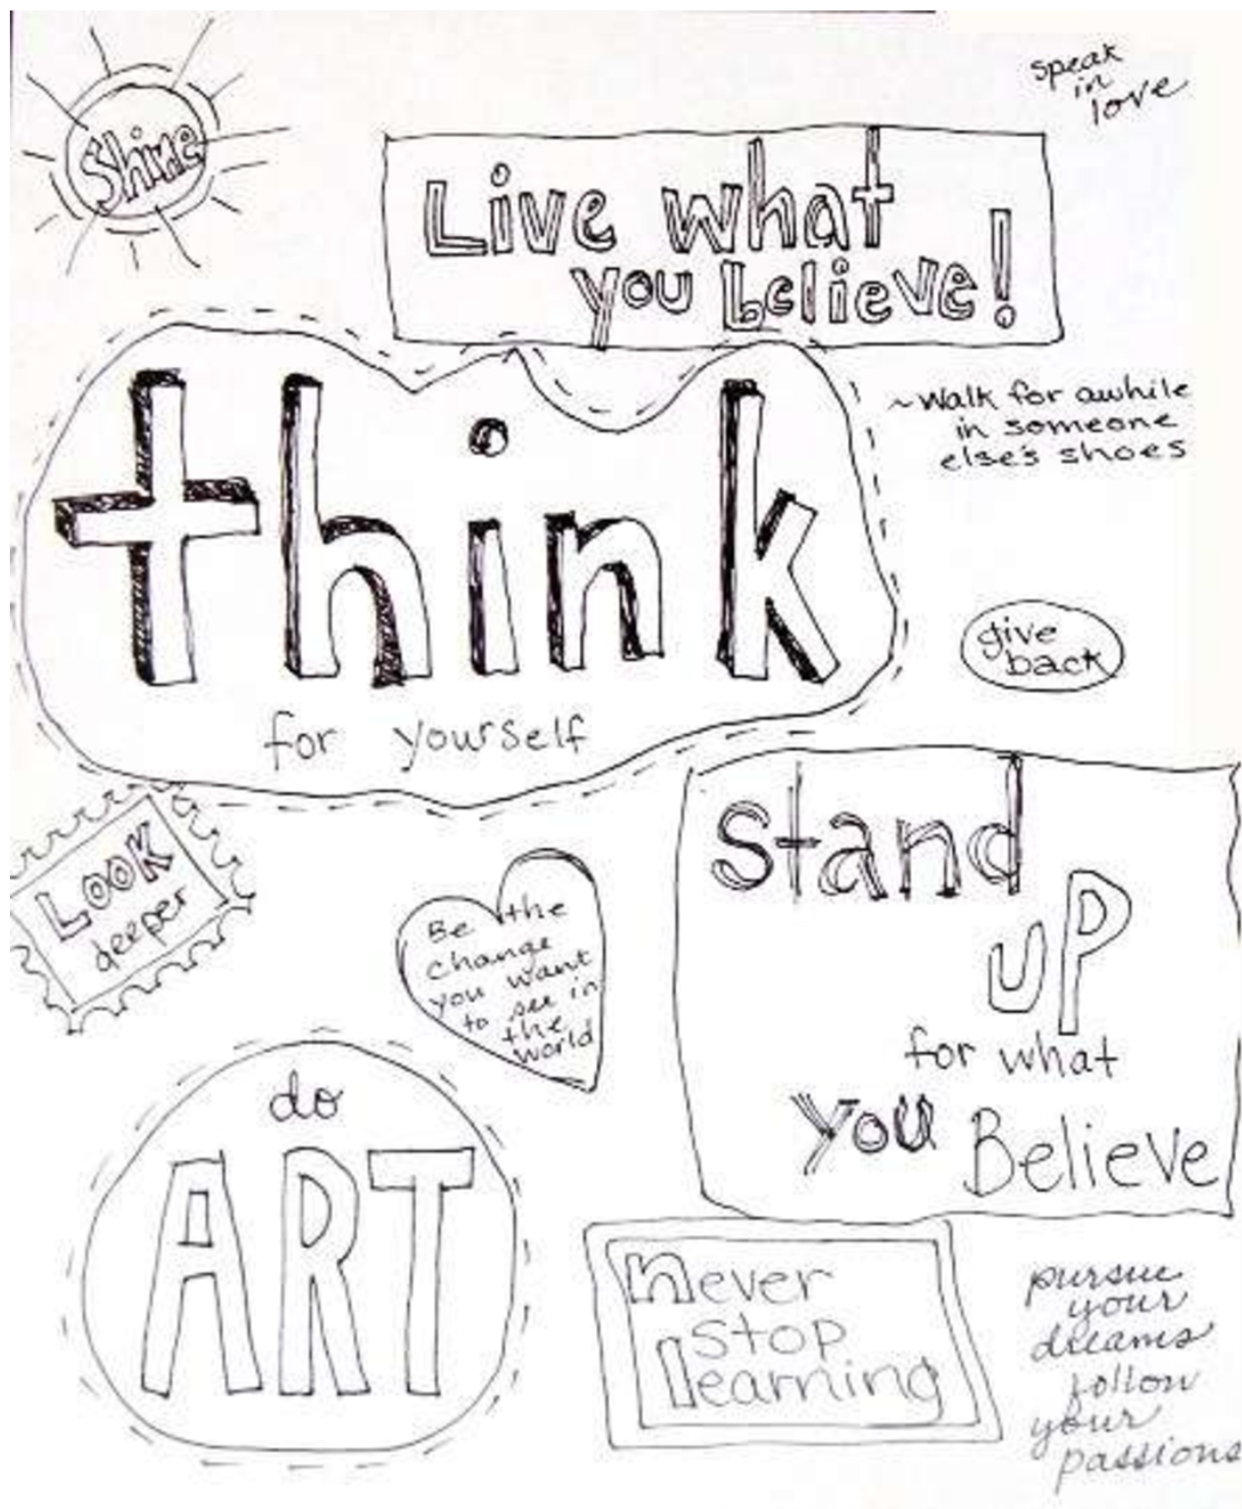 Shine
speak
in
love
Live what
you believe!
think
for yourself
~Walk for awhile
in someone
else's shoes
give
back
LOOK
deeper
Be the
change
you want
to see in
the
world
Stand
UP
for what
you Believe
do
ART
never
stop
learning
pursue
your
dreams
follow
your
passions